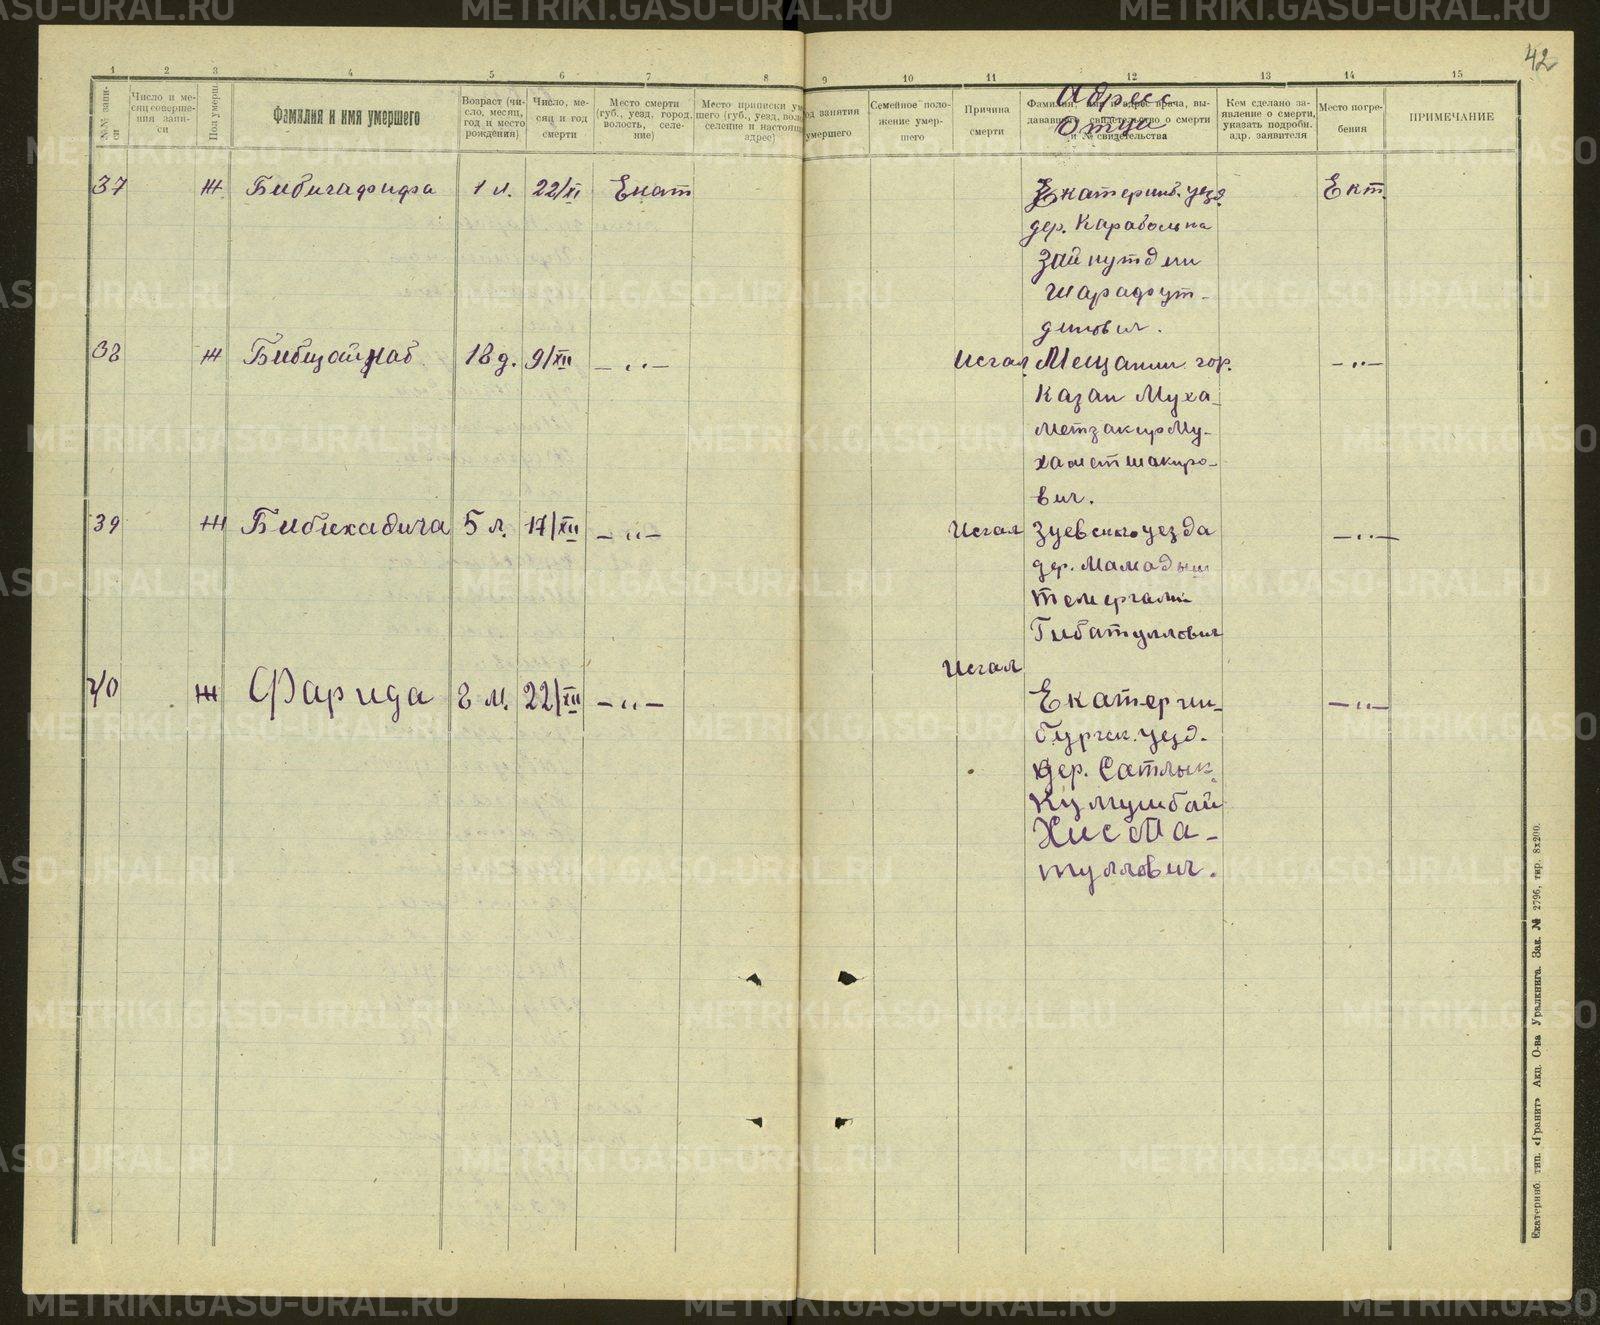 METRIKI.GASO-URAL.RU
42
1 2 3 4 5 6 7 8 9 10 11 12 13 14 15
№№ записи
Число и месяц совершения записи
Пол умерш.
Фамилия и имя умершего
Возраст (число, месяц, год и место рождения)
Число, месяц и год смерти
Место смерти (губ., уезд, город, волость, селение)
Место приписки
Семейное положение умершего
Причина смерти
Адрес
отца
Фамилия, свидетельство о смерти и № свидетельства
Кем сделано заявление о смерти, указать подробн. адр. заявителя
Место погребения
ПРИМЕЧАНИЕ
37 Ж Бибигафифа 1 л. 22/XI Екат Екатеринб. уезд. Ект.
дер. Караболка
Зайнутдин
Шарафут-
динович.
38 Ж Бибизайнаб 18 д. 9/XII —"— Мещанин гор. —"—
Казан Муха-
метзакир Му-
хаметшакиро-
вич.
39 Ж Бибихадича 5 л. 17/XII —"— уезда —"—
дер. Мамадыш
Темергали
Гибатуллович
40 Ж Фарида 8 м. 22/XII —"— Екатерин- —"—
бургск. уезд.
дер. Сатлык
Кумушбай
Хисма-
туллович.
Екатеринб. тип. «Гранит» Акц. О-ва Уралкнига. Зак. № 2796, тир. 8х200.